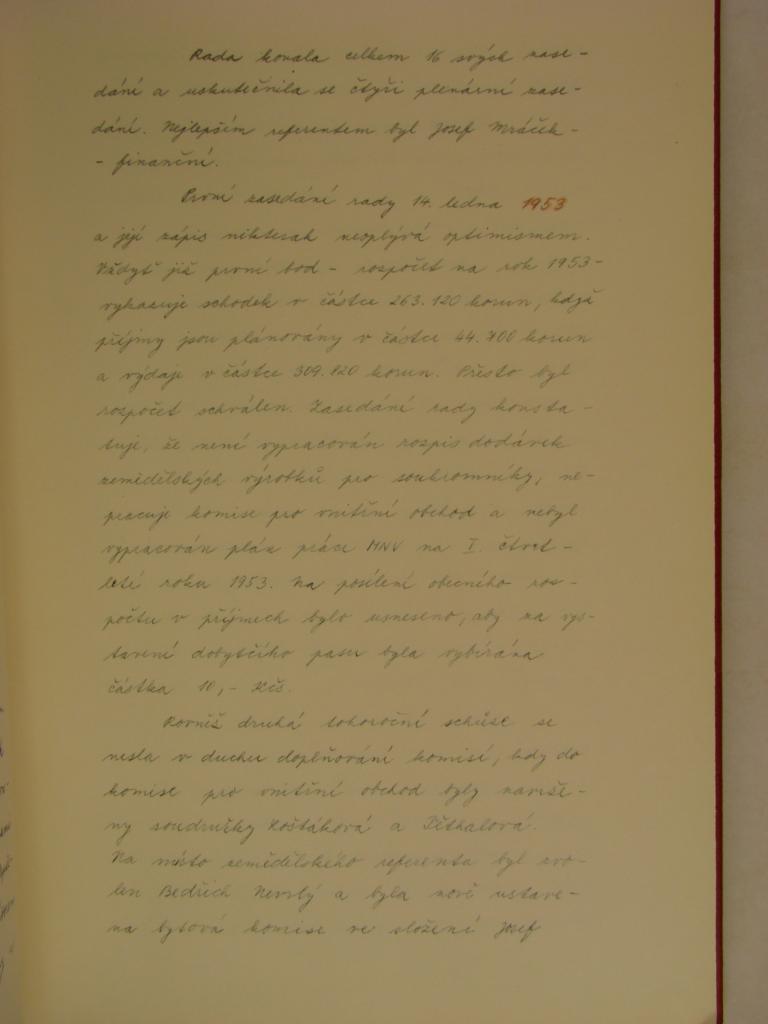 Rada konala celkem 16 svých zase-
dání a uskutečnila se čtyři plenární zase-
dání. Nejlepším referentem byl Josef Mráček -
- finanční.
První zasedání rady 14. ledna 1953
a její zápis nikterak neoplývá optimismem.
Vždyť již první bod - rozpočet na rok 1953 -
vykazuje schodek v částce 263.120 korun, když
příjmy jsou plánovány v částce 44.700 korun
a výdaje v částce 309.820 korun. Přesto byl
rozpočet schválen. Zasedání rady konsta-
tuje, že není vypracován rozpis dodávek
zemědělských výrobků pro soukromníky, ne-
pracuje komise pro vnitřní obchod a nebyl
vypracován plán práce MNV na I. čtvrt-
letí roku 1953. Na posílení obecného roz-
počtu v příjmech bylo usneseno, aby za vys-
tavení dobytčího pasu byla vybírána
částka 10,- Kčs.
Rovněž druhá tohoroční schůze se
nesla v duchu doplňování komisí, kdy do
komise pro vnitřní obchod byly navrže-
ny soudružky Košťáková a
Na místo zemědělského referenta byl zvo-
len Bedřich Nevrlý a byla nově ustave-
na bytová komise ve složení Josef